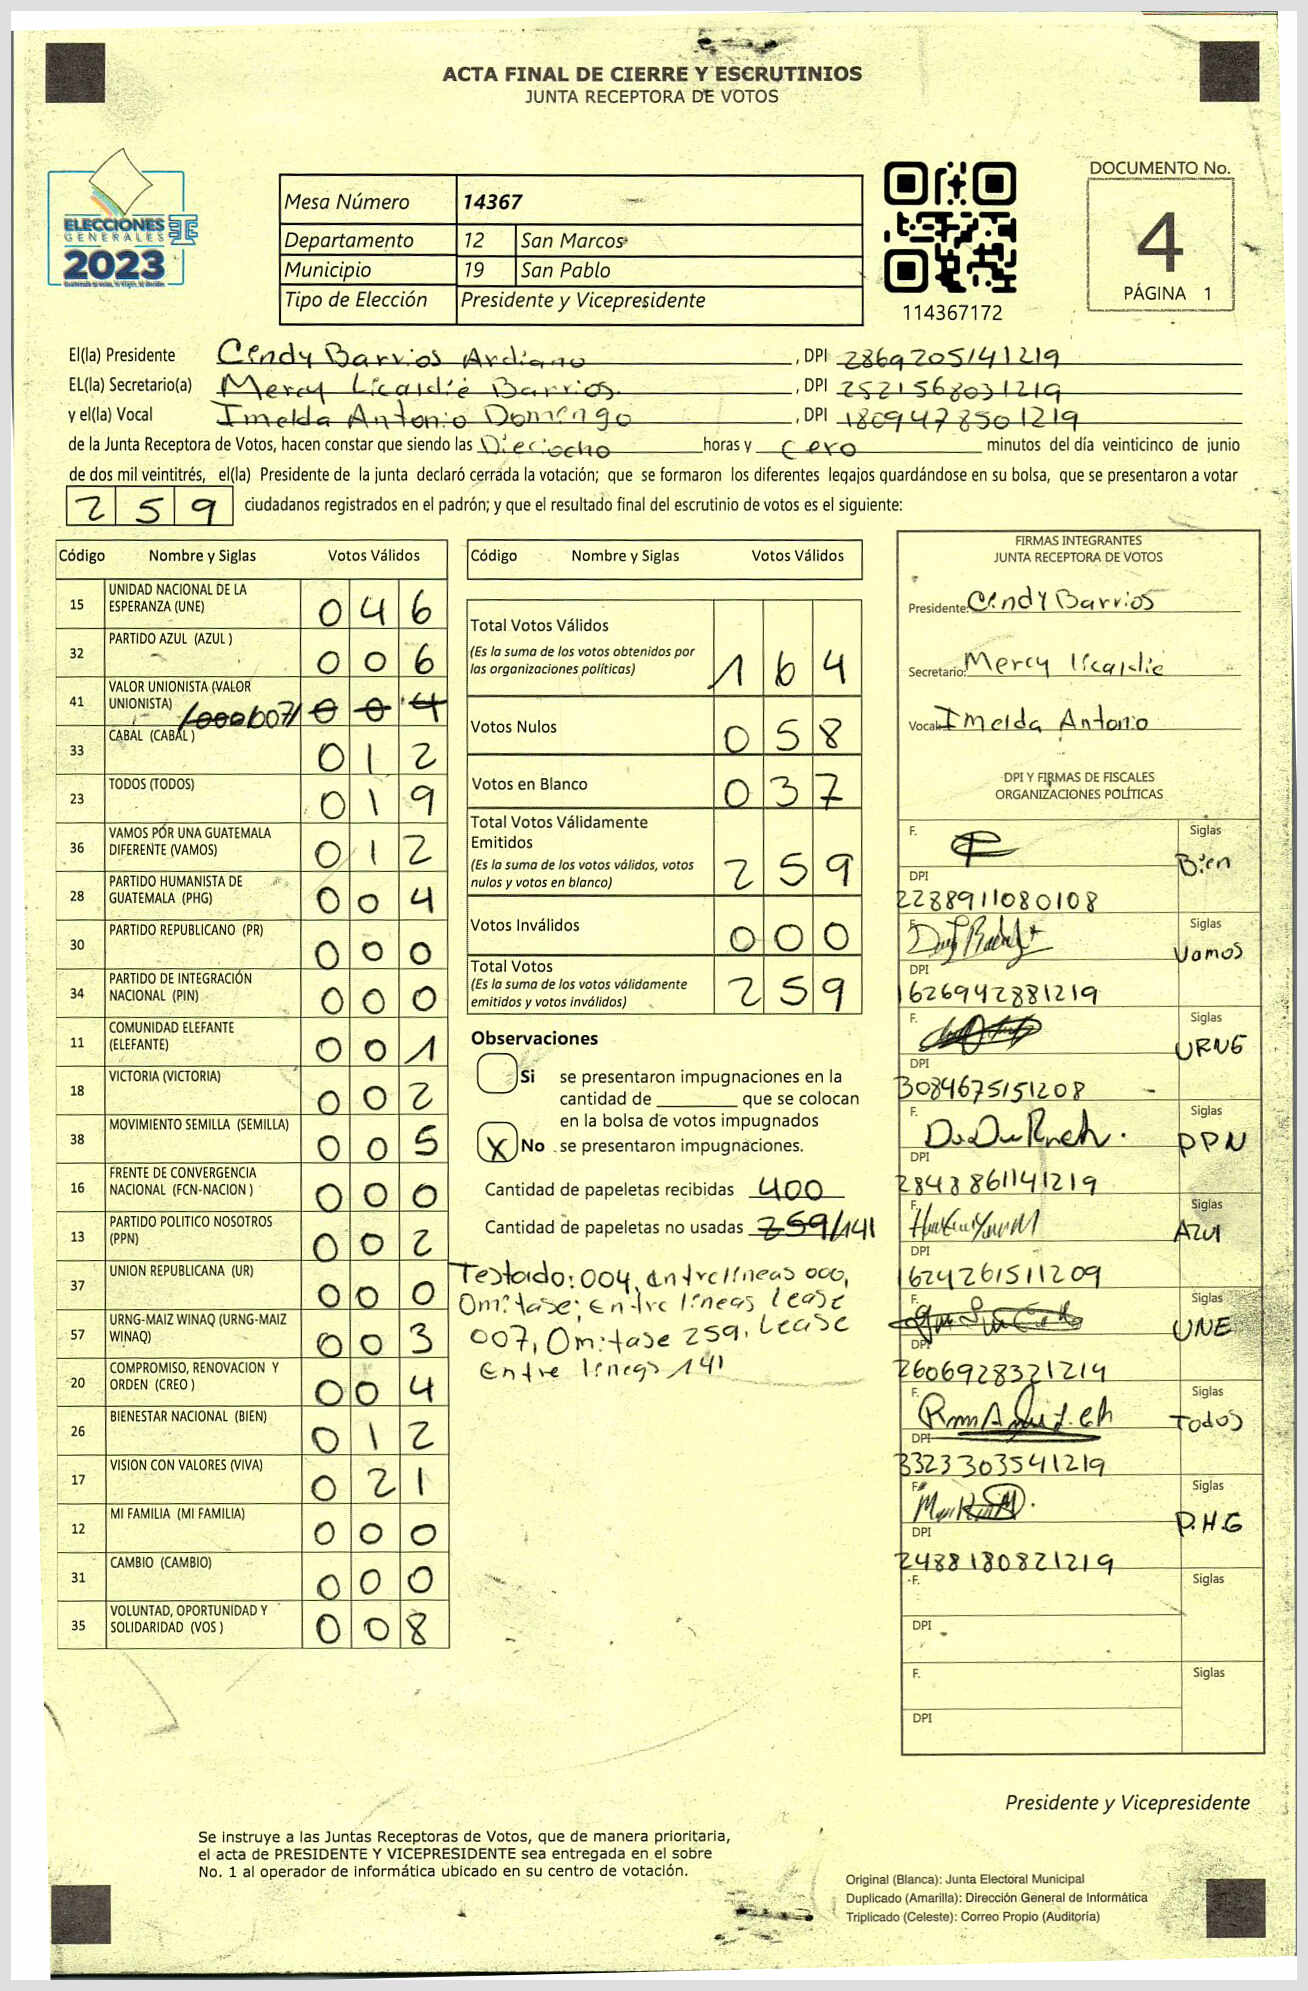 ACTA FINAL DE CIERRE Y ESCRUTINIOS
JUNTA RECEPTORA DE VOTOS
ELECCIONES
GENERALES
2023
Mesa Número 14367
Departamento 12 San Marcos
Municipio 19 San Pablo
Tipo de Elección Presidente y Vicepresidente
114367172
DOCUMENTO No.
4
PÁGINA 1
El(la) Presidente Cindy Barrios Ardiano , DPI 2869205141219
EL(la) Secretario(a) Mercy Licaldié Barrios. , DPI 2521568031219
y el(la) Vocal Imelda Antonio Domingo , DPI 1809478501219
de la Junta Receptora de Votos, hacen constar que siendo las Dieciocho horas y cero minutos del día veinticinco de junio
de dos mil veintitrés, el(la) Presidente de la junta declaró cerrada la votación; que se formaron los diferentes legajos guardándose en su bolsa, que se presentaron a votar
259 ciudadanos registrados en el padrón; y que el resultado final del escrutinio de votos es el siguiente:
Código Nombre y Siglas Votos Válidos
15 UNIDAD NACIONAL DE LA ESPERANZA (UNE) 046
32 PARTIDO AZUL (AZUL ) 006
41 VALOR UNIONISTA (VALOR UNIONISTA) /000/007/ 004
33 CABAL (CABAL ) 012
23 TODOS (TODOS) 019
36 VAMOS POR UNA GUATEMALA DIFERENTE (VAMOS) 012
28 PARTIDO HUMANISTA DE GUATEMALA (PHG) 004
30 PARTIDO REPUBLICANO (PR) 000
34 PARTIDO DE INTEGRACIÓN NACIONAL (PIN) 000
11 COMUNIDAD ELEFANTE (ELEFANTE) 001
18 VICTORIA (VICTORIA) 002
38 MOVIMIENTO SEMILLA (SEMILLA) 005
16 FRENTE DE CONVERGENCIA NACIONAL (FCN-NACION ) 000
13 PARTIDO POLITICO NOSOTROS (PPN) 002
37 UNION REPUBLICANA (UR) 000
57 URNG-MAIZ WINAQ (URNG-MAIZ WINAQ) 003
20 COMPROMISO, RENOVACION Y ORDEN (CREO ) 004
26 BIENESTAR NACIONAL (BIEN) 012
17 VISION CON VALORES (VIVA) 021
12 MI FAMILIA (MI FAMILIA) 000
31 CAMBIO (CAMBIO) 000
35 VOLUNTAD, OPORTUNIDAD Y SOLIDARIDAD (VOS ) 008
Código Nombre y Siglas Votos Válidos
Total Votos Válidos 164
(Es la suma de los votos obtenidos por
las organizaciones políticas)
Votos Nulos 058
Votos en Blanco 037
Total Votos Válidamente
Emitidos 259
(Es la suma de los votos válidos, votos
nulos y votos en blanco)
Votos Inválidos 000
Total Votos 259
(Es la suma de los votos válidamente
emitidos y votos inválidos)
Observaciones
Si se presentaron impugnaciones en la
cantidad de ________ que se colocan
en la bolsa de votos impugnados
X No se presentaron impugnaciones.
Cantidad de papeletas recibidas 400
Cantidad de papeletas no usadas 259/141
Testado: 004, entrelíneas 000,
Omitase; Entre líneas Lease
007, Omitase 259, Lease
Entre líneas 141
FIRMAS INTEGRANTES
JUNTA RECEPTORA DE VOTOS
Presidente: Cindy Barrios
Secretario: Mercy licaldié
Vocal: Imelda Antonio
DPI Y FIRMAS DE FISCALES
ORGANIZACIONES POLÍTICAS
F. Siglas Bien
DPI 2288911080108
F. Siglas Vamos
DPI 1626942881219
F. Siglas URNG
DPI 3084675151208
F. Siglas PPN
DPI 2848861141219
F. Siglas Azul
DPI 1624261511209
F. Siglas UNE
DPI 2606928321219
F. Siglas Todos
DPI 3323303541219
F. Siglas P.H.G
DPI 2488180821219
F. Siglas
DPI
F. Siglas
DPI
Presidente y Vicepresidente
Se instruye a las Juntas Receptoras de Votos, que de manera prioritaria,
el acta de PRESIDENTE Y VICEPRESIDENTE sea entregada en el sobre
No. 1 al operador de informática ubicado en su centro de votación.
Original (Blanca): Junta Electoral Municipal
Duplicado (Amarilla): Dirección General de Informática
Triplicado (Celeste): Correo Propio (Auditoría)